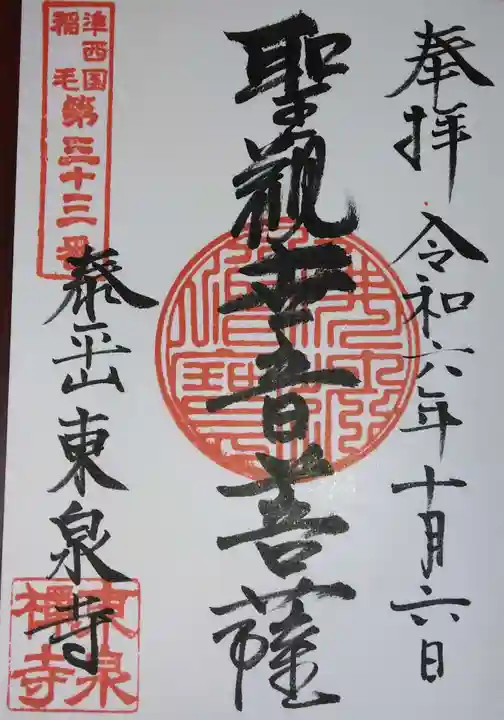 奉拝 令和六年十月六日
聖観世音菩薩
準西国
稲毛
第三十三番
泰平山東泉寺
東泉
禅寺